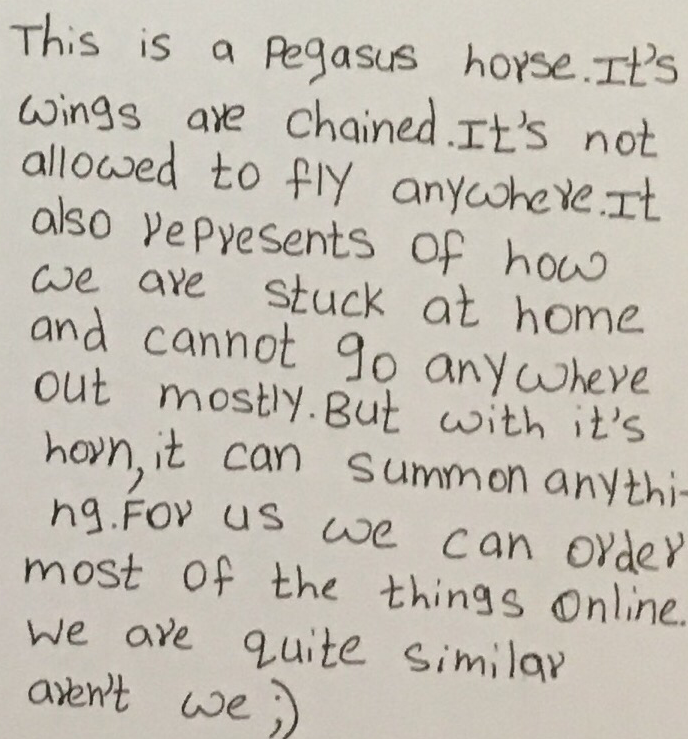 This is a Pegasus horse.It's
wings are chained.It's not
allowed to fly anywhere.It
also represents of how
we are stuck at home
and cannot go anywhere
out mostly.But with it's
horn,it can summon anythi-
ng.For us we can order
most of the things online.
We are quite similar
aren't we ;)